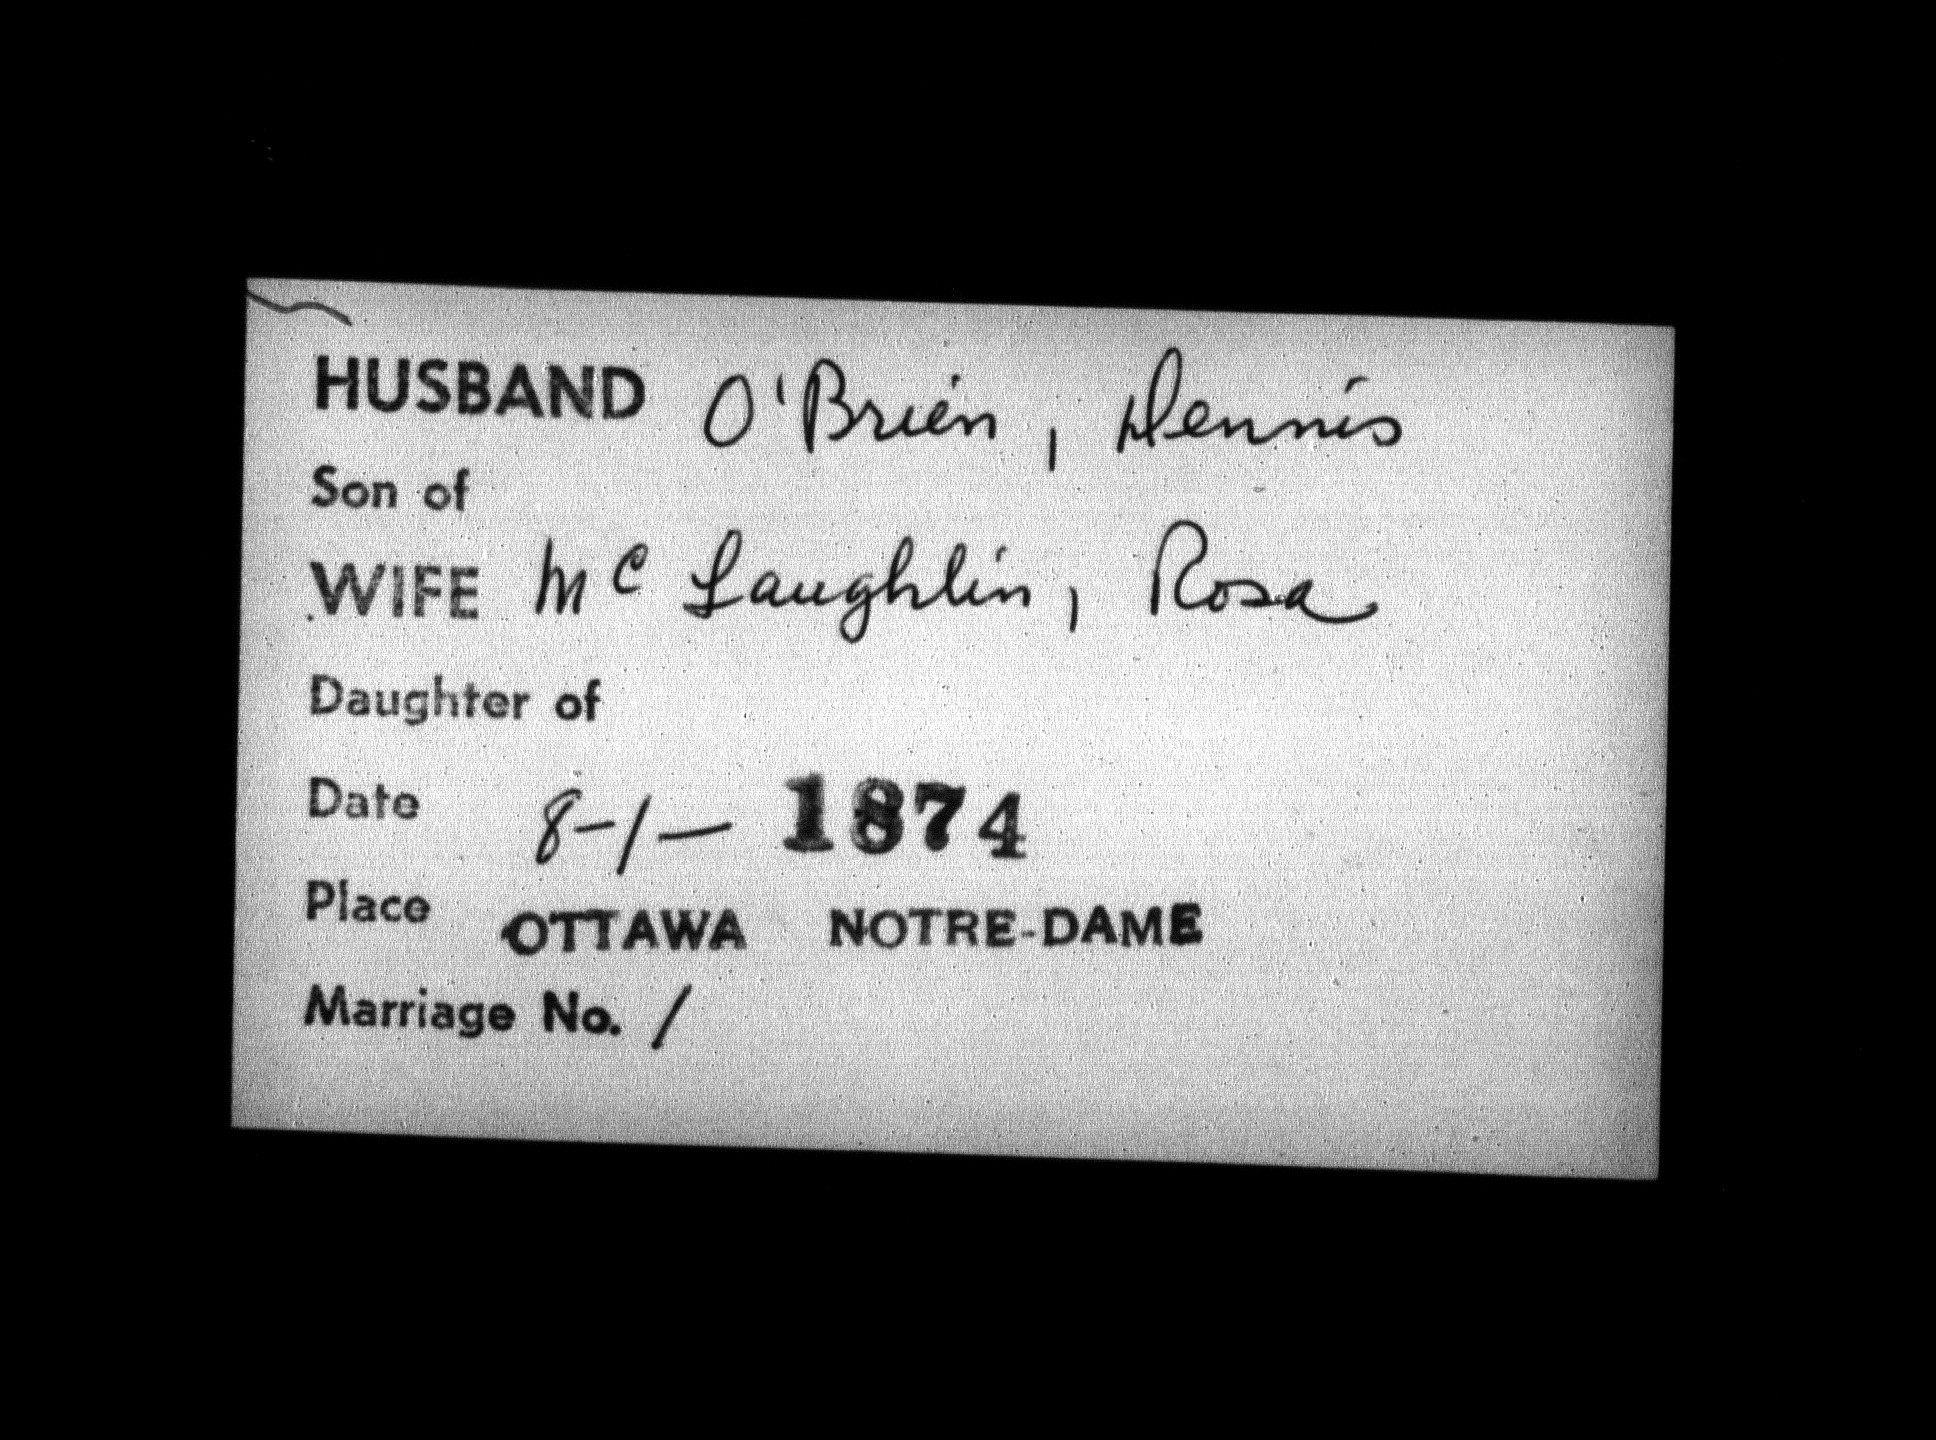 HUSBAND O'Brien, Dennis
Son of
WIFE Mc Laughlin, Rosa
Daughter of
Date 8-1- 1874
Place OTTAWA NOTRE-DAME
Marriage No. 1